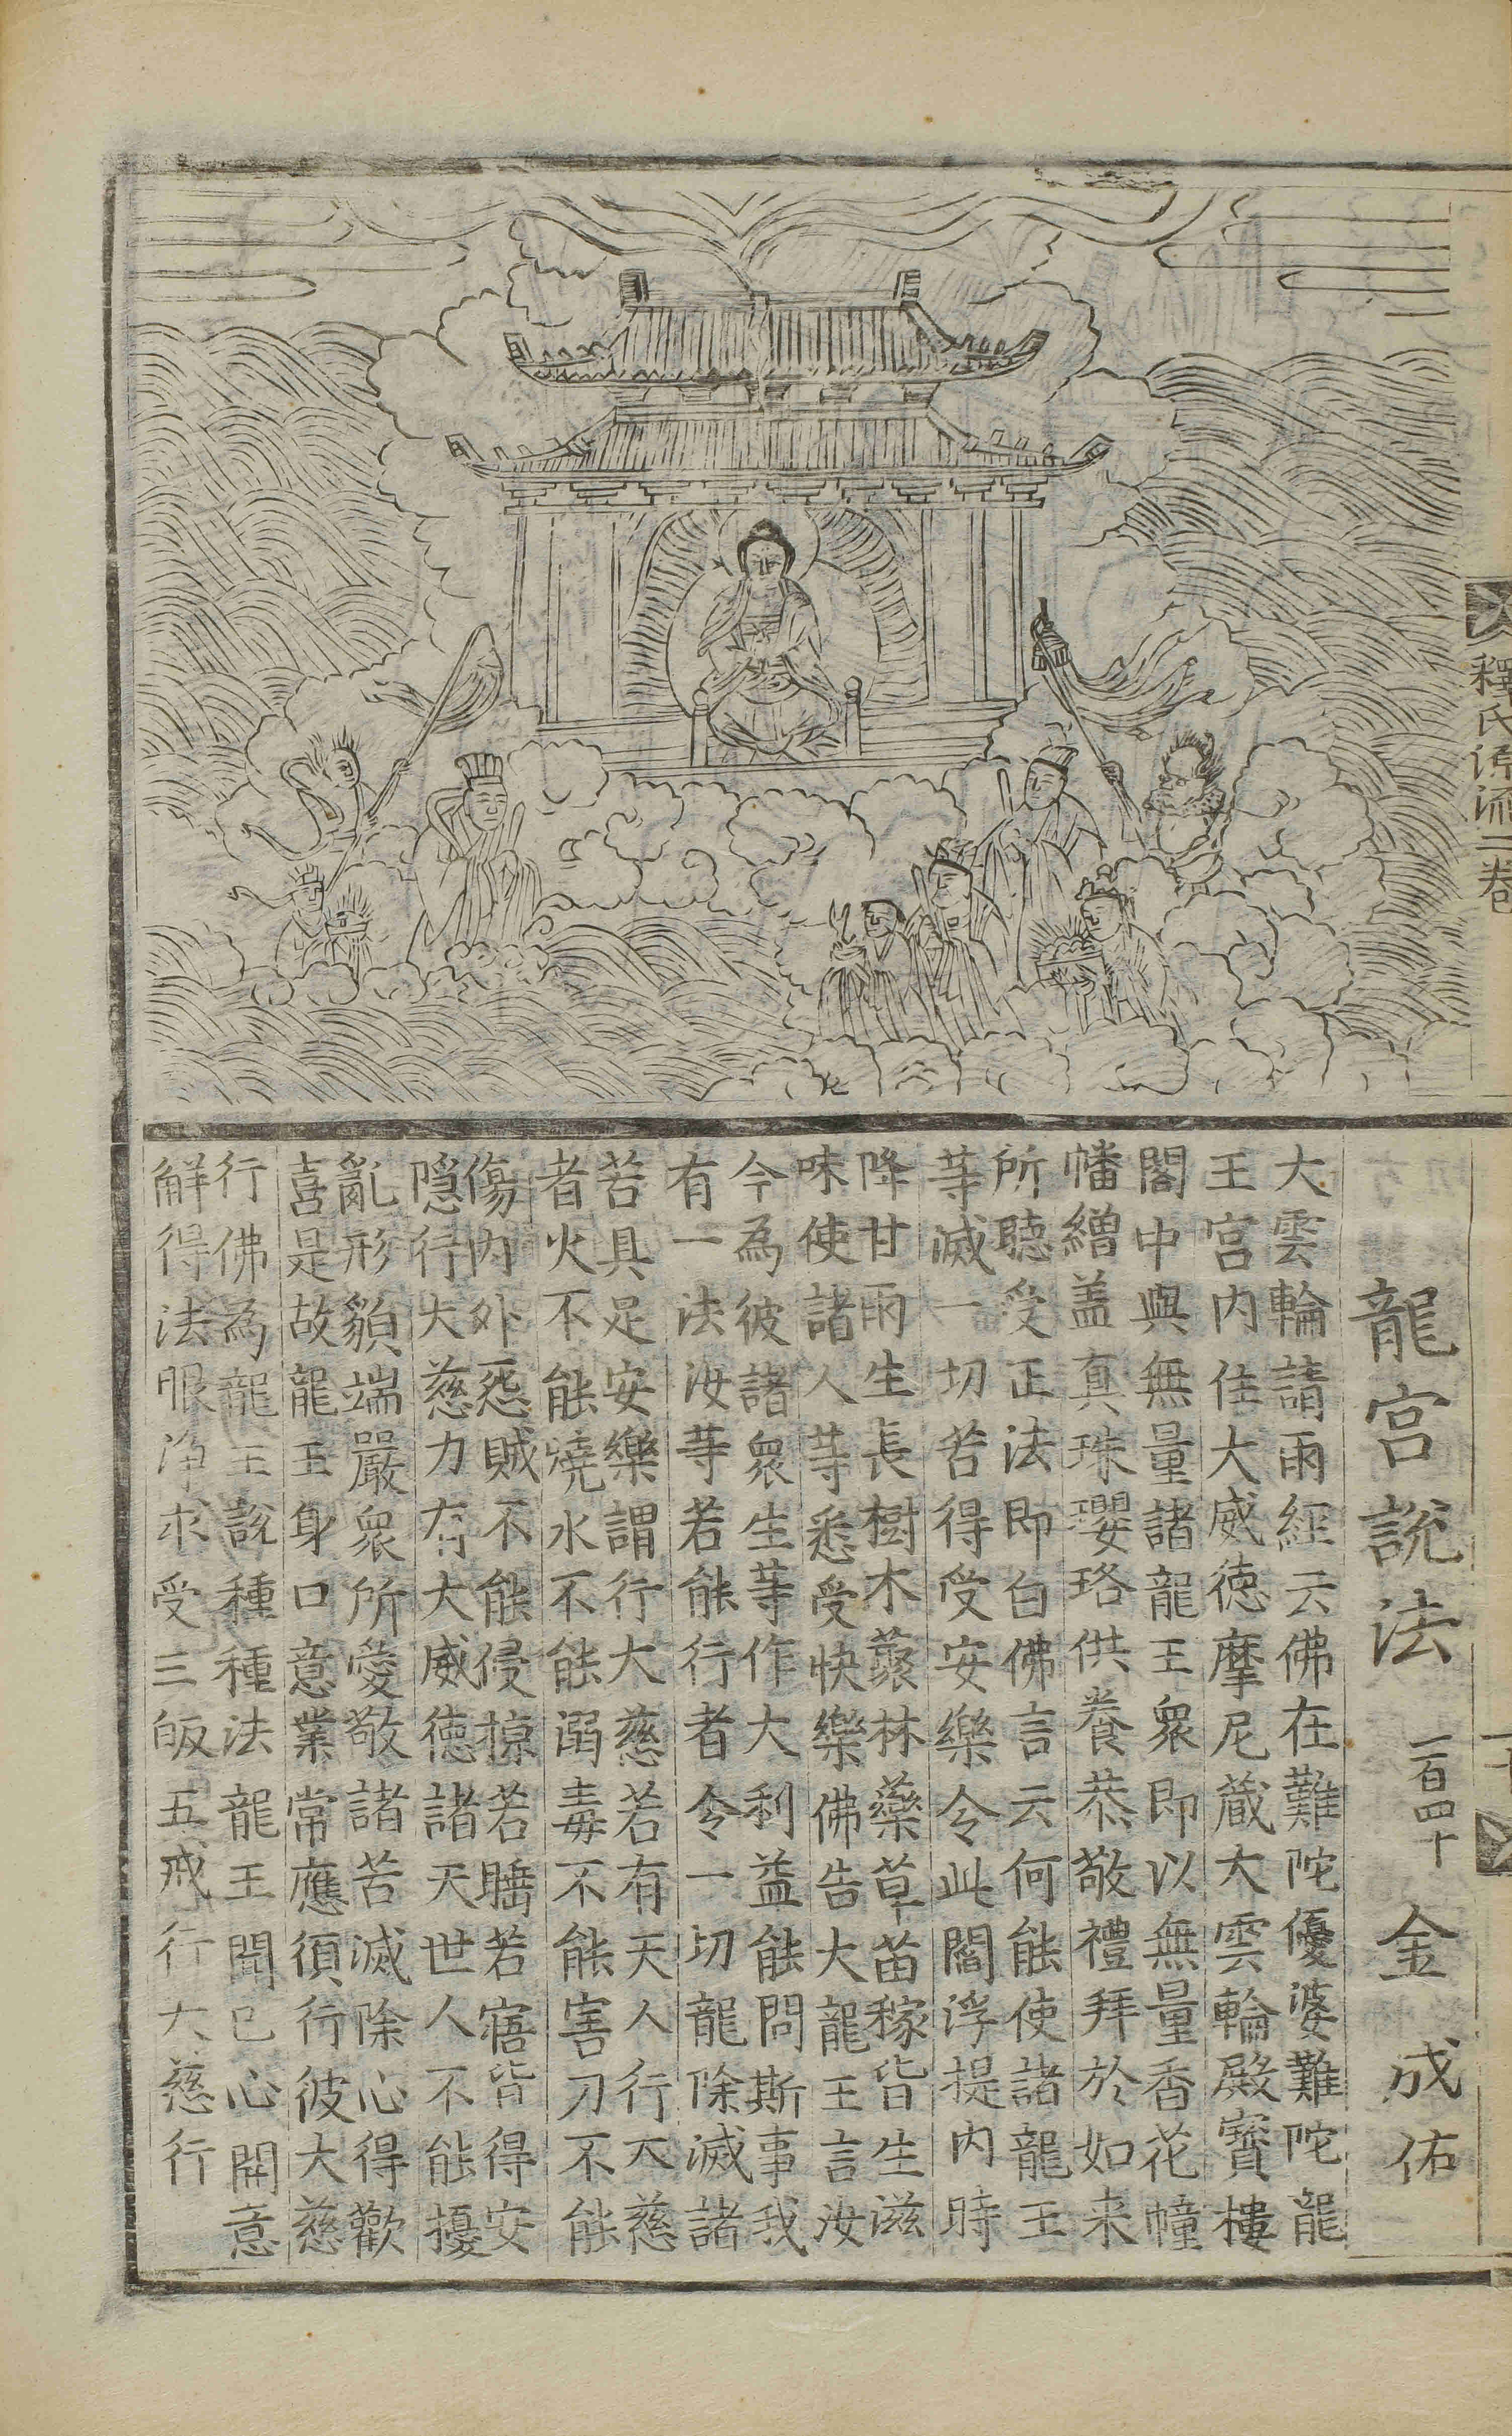 釋氏源流二卷
龍宮說法 一百四十 金成佑
大雲輪請雨経云佛在難陀優婆難陀龍
王宮内住大威徳摩尼蔵大雲輪殿寳樓
閣中與無量諸龍王衆即以無量香花幢
幡繒盖真珠瓔珞供養恭敬禮拜於如来
所聽受正法即白佛言云何能使諸龍王
等滅一切苦得受安樂令此閻浮提内時
降甘雨生長樹木藂林藥草苗稼皆生滋
味使諸人等悉受快樂佛告大龍王言汝
今為彼諸衆生等作大利益能問斯事我
有一法汝等若能行者令一切龍除滅諸
苦具足安樂謂行大慈若有天人行大慈
者火不能燒水不能溺毒不能害刀不能
傷内外惡賊不能侵掠若睡若寤皆得安
隠行大慈力有大威徳諸天世人不能擾
亂形貌端嚴衆所愛敬諸苦滅除心得歡
喜是故龍王身口意業常應須行彼大慈
行佛為龍王說種種法龍王聞已心開意
解得法眼净求受三皈五戒行大慈行